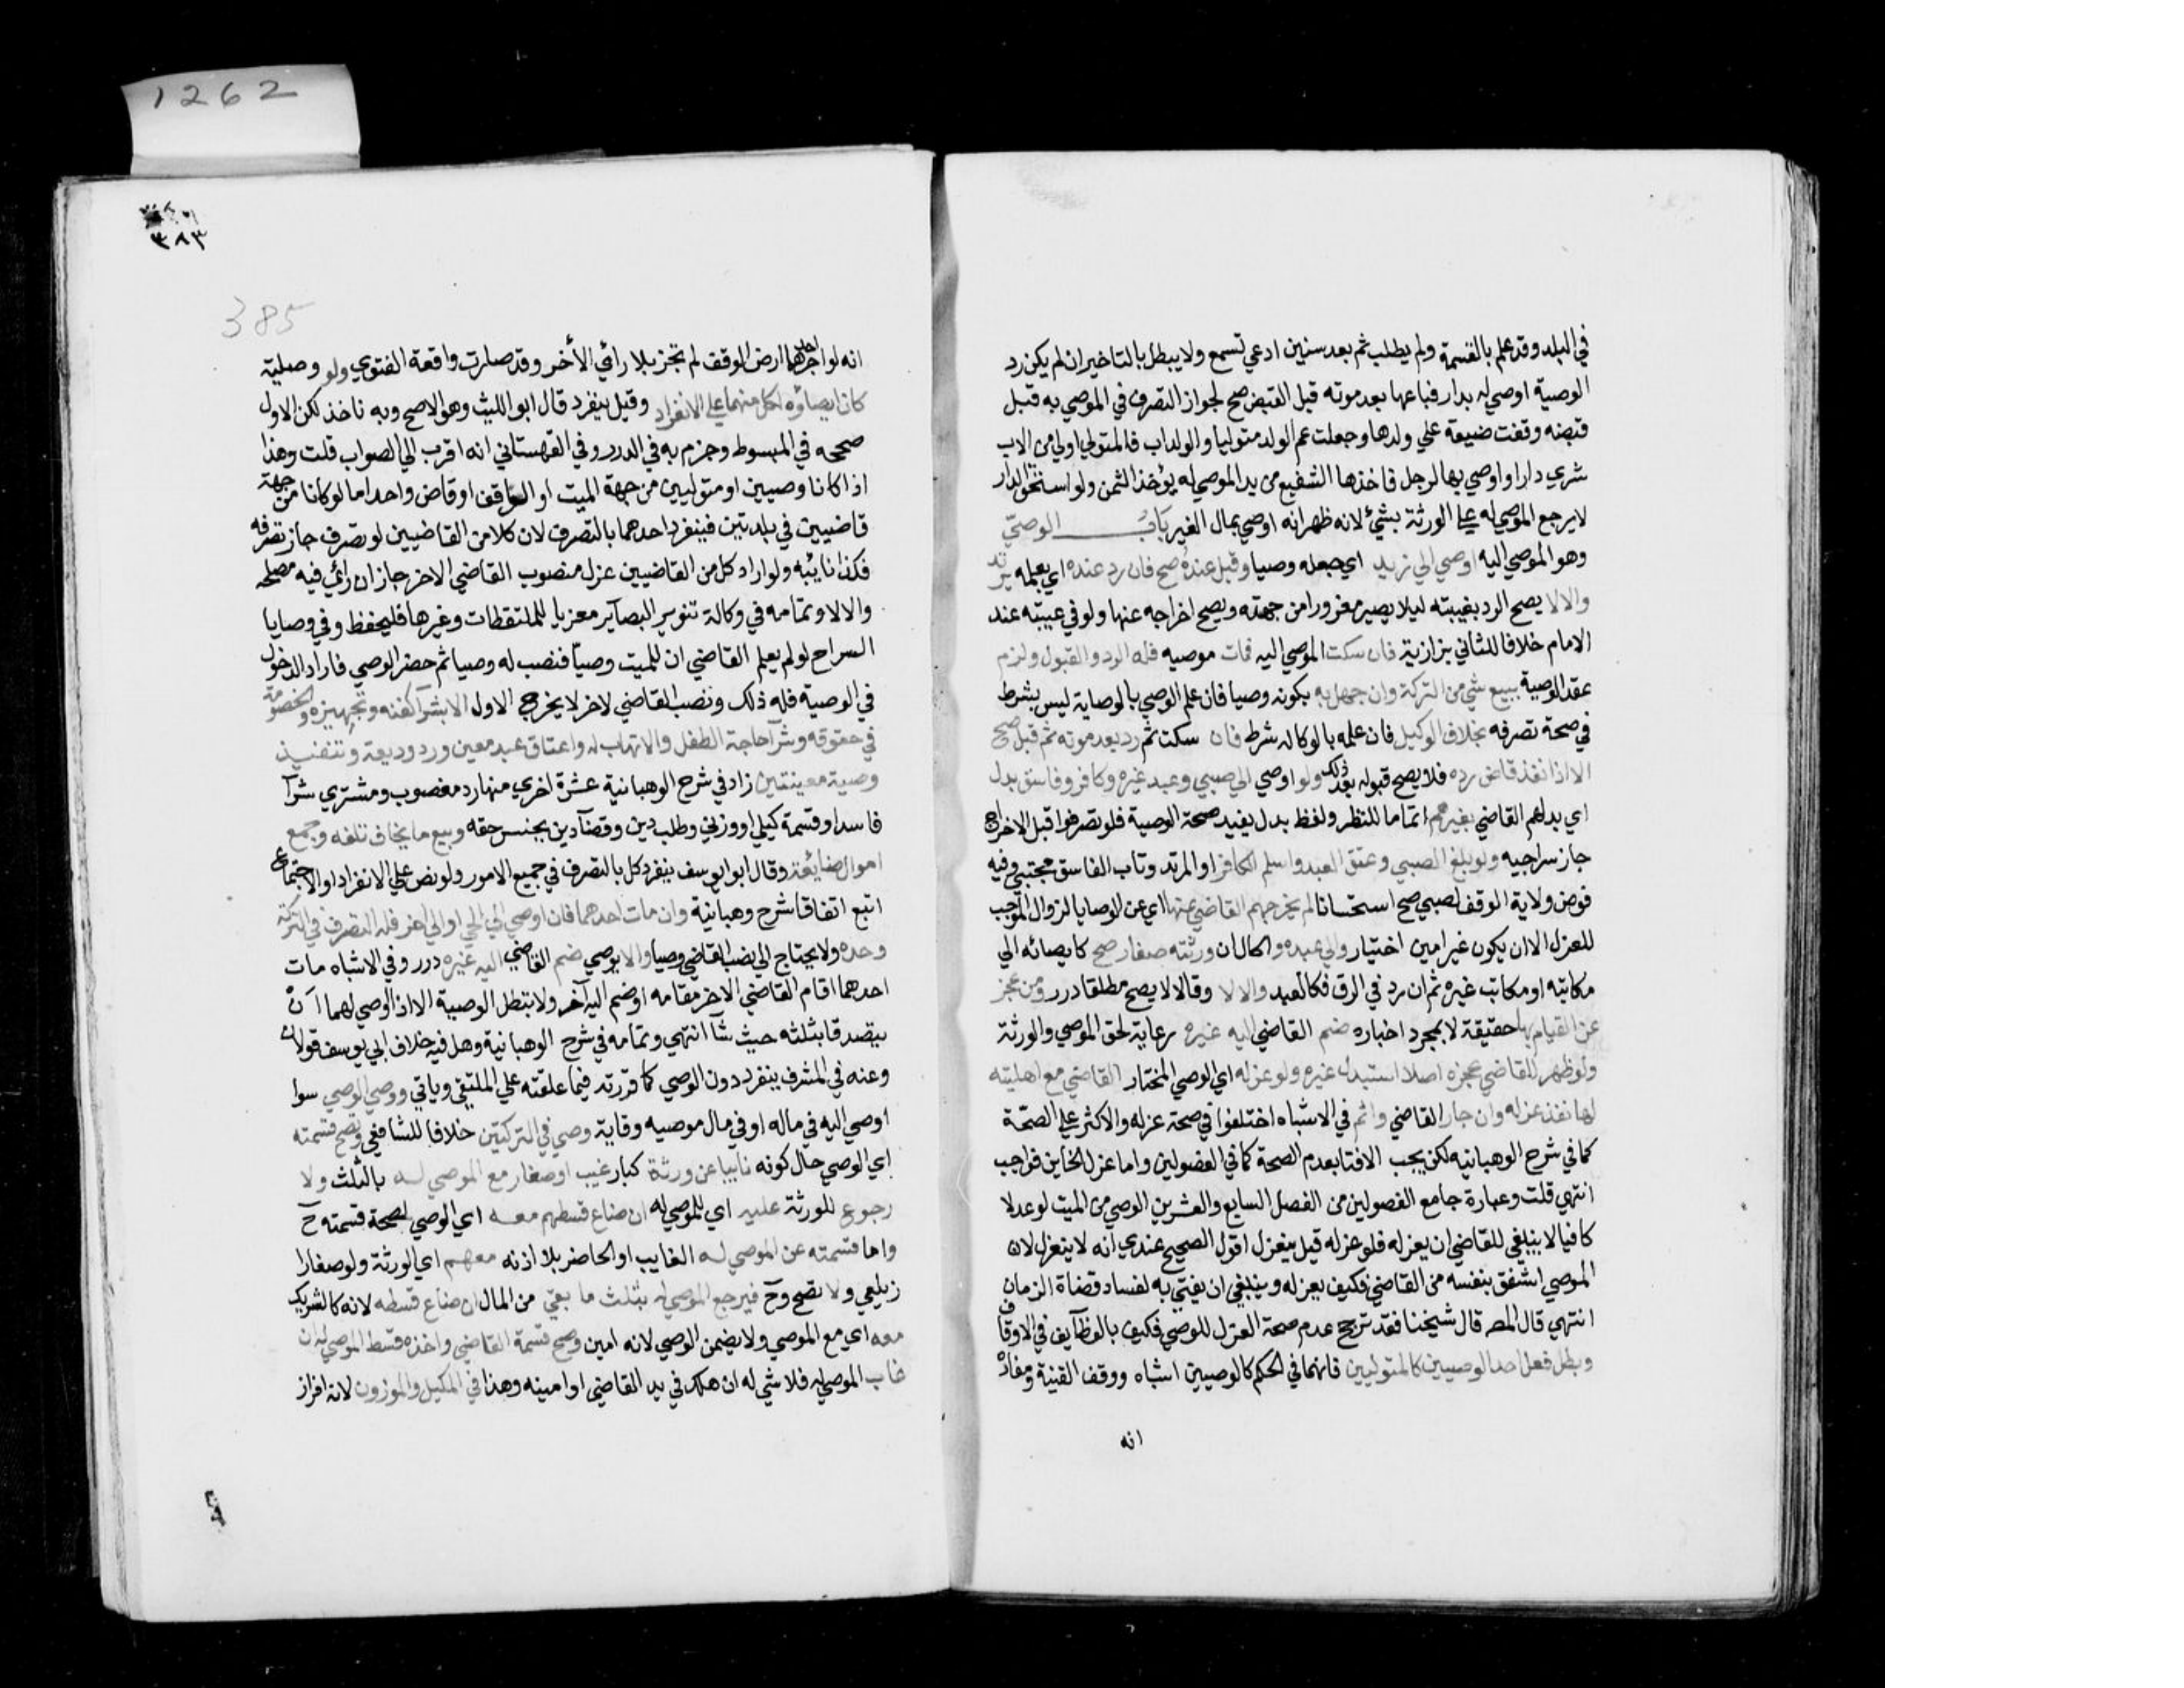 في البلد وقد علم بالقسمة ولم يطلب ثم بعد سنين ادعي تسمع ولا يبطل بالتاخير ان لم يكن رد
الوصية اوصي له بدار فباعها بعد موته قبل القبض صح لجواز التصرف في الموصي به قبل
قبضه وقفت ضيعة علي ولدها وجعلت عم الولد متوليا والولد اب فالمتولي اولي من الاب
شري دارا واوصي بها لرجل فاخذها الشفيع من يد الموصي له يؤخذ الثمن ولو استحق الدار
لا يرجع الموصي له علي الورثة بشيء لانه ظهر انه اوصي بمال الغير باب الوصيّ
وهو الموصي اليه اوصي الي زيد اي جعله وصيا وقبل عنده صح فان رد عنده اي بعلمه يرتد
والا لا يصح الرد بغيبته ليلا يصير مغرورا من جهته ويصح اخراجه عنها ولو في غيبته عند
الامام خلافا للثاني بزازية فان سكت الموصي اليه فمات موصيه فله الرد والقبول ولزم
عقد الوصية ببيع شي من التركة وان جهل به بكونه وصيا فان علم الوصي بالوصاية ليس بشرط
في صحة تصرفه بخلاف الوكيل فان علمه بالوكاله شرط فان سكت ثم رد بعد موته ثم قبل صح
الا اذا نفذ قاض رده فلا يصح قبوله بعد ذلك ولو اوصي الي صبي وعبد غيره وكافر وفاسق بدل
اي بدلهم القاضي بغيرهم اتماما للنظر ولفظ بدل يفيد صحة الوصية فلو تصرفوا قبل الاخراج
جاز سراجيه ولو بلغ الصبي وعتق العبد واسلم الكافر او المرتد وتاب الفاسق مجتبي وفيه
فوض ولاية الوقف لصبي صح استحسانا لم يخرجهم القاضي عنها اي عن الوصايا لزوال الموجب
للعزل الا ان يكون غير امين اختيار والي عبده والحال ان ورثته صغار صح كايصائه الي
مكاتبه او مكاتب غيره ثم ان رد في الرق فكالعبد والا لا وقالا لا يصح مطلقا درر ومن عجز
عن القيام بها حقيقة لا بمجرد اخباره ضم القاضي اليه غيره رعاية لحق الموصي والورثة
ولو ظهر للقاضي عجزه اصلا استبدل غيره ولو عزله اي الوصي المختار القاضي مع اهليته
لها نفذ عزله وان جار القاضي واثم في الاشباه اختلفوا في صحة عزله والاكثر علي الصحّة
كما في شرح الوهبانيه لكن يجب الافتا بعدم الصحة كما في الفصولين واما عزل الخاين فواجب
انتهي قلت وعبارة جامع الفصولين من الفصل السابع والعشرين الوصي من الميت لو عدلا
كافيا لا ينبغي للقاضي ان يعزله فلو عزله قيل ينعزل اقول الصحيح عندي انه لا ينعزل لان
الموصي اشفق بنفسه من القاضي فكيف يعزله وينبغي ان يفتي به لفساد قضاة الزمان
انتهي قال المص قال شيخنا فقد ترجح عدم صحة العزل للوصي فكيف بالوظايف في الاوقاف
وبطل فعل احد الوصيين كالمتوليين فانهما في الحكم كالوصيين اشباه ووقف القنية ومفاده
انه
٣٨٣
385
انه لو اجر احدهما ارض الوقف لم تجز بلا رائي الأخر وقد صارت واقعة الفتوي ولو وصلية
كان ايصاؤه لكل منهما علي الانفراد وقيل ينفرد قال ابو الليث وهو الاصح وبه ناخذ لكن الاول
صححه في المبسوط وجزم به في الدرر وفي القهستاني انه اقرب الي الصواب قلت وهذا
اذا كانا وصيين او متوليين من جهة الميت او الواقف او قاض واحد اما لو كانا من جهة
قاضيين في بلدتين فينفرد احدهما بالتصرف لان كلا من القاضيين لو تصرف جاز تصرفه
فكذا نايبه ولو اراد كل من القاضيين عزل منصوب القاضي الاخر جاز ان رائي فيه مصلحه
والا لا وتمامه في وكالة تنوير البصآير معزيا للملتقطات وغيرها فليحفظ وفي وصايا
السراج لو لم يعلم القاضي ان للميت وصيّا فنصب له وصيا ثم حضر الوصي فاراد الدخول
في الوصية فله ذلك ونصب القاضي لاخر لا يخرج الاول الا بشرآ كفنه وتجهيزه والخصومة
في حقوقه وشرآ حاجة الطفل والاتهاب له واعتاق عبد معين ورد وديعة وتنفيذ
وصية معينتين زاد في شرح الوهبانية عشرة اخري منها رد مغصوب ومشتري شرآ
فاسدا وقسمة كيلي او وزني وطلب دين وقضآ دين بجنس حقه وبيع ما يخاف تلفه وجمع
اموال ضايعة وقال ابو يوسف ينفرد كل بالتصرف في جميع الامور ولو نص علي الانفراد او الاجتماع
اتبع اتفاقا شرح وهبانية وان مات احدهما فان اوصي الي الحي او الي اخر فله التصرف في التركة
وحده ولا يحتاج الي نصب القاضي وصيا والا يوصي ضم القاضي اليه غيره درر وفي الاشباه مات
احدهما اقام القاضي الاخر مقامه او ضم اليه آخر ولا تبطل الوصية الا اذا اوصي لهما ان
يتصدقا بثلثه حيث شآ انتهي وتمامه في شرح الوهبانية وهل فيه خلاف ابي يوسف قولان
وعنه في المشرف ينفرد دون الوصي كما قررته فيما علقته علي الملتقي وياتي ووصي الوصي سوا
اوصي اليه في ماله او في مال موصيه وقاية وصي في التركتين خلافا للشافعي وتصح قسمته
اي الوصي حال كونه نايبا عن ورثة كبار غيب او صغار مع الموصي له بالثلث ولا
رجوع للورثة عليه اي للموصي له ان ضاع قسطهم معه اي الوصي لصحة قسمته ح
واما قسمته عن الموصي له الغايب او الحاضر بلا اذنه معهم اي الورثة ولو صغارا
زيلعي ولا تصح وح فيرجع الموصي له بثلث ما بقي من المال ان ضاع قسطه لانه كالشريك
معه اي مع الموصي ولا يضمن الوصي لانه امين وصح قسمة القاضي واخذه قسط الموصي له ان
غاب الموصي له فلا شي له ان هلك في يد القاضي او امينه وهذا في المكيل والموزون لانه افراز
1262